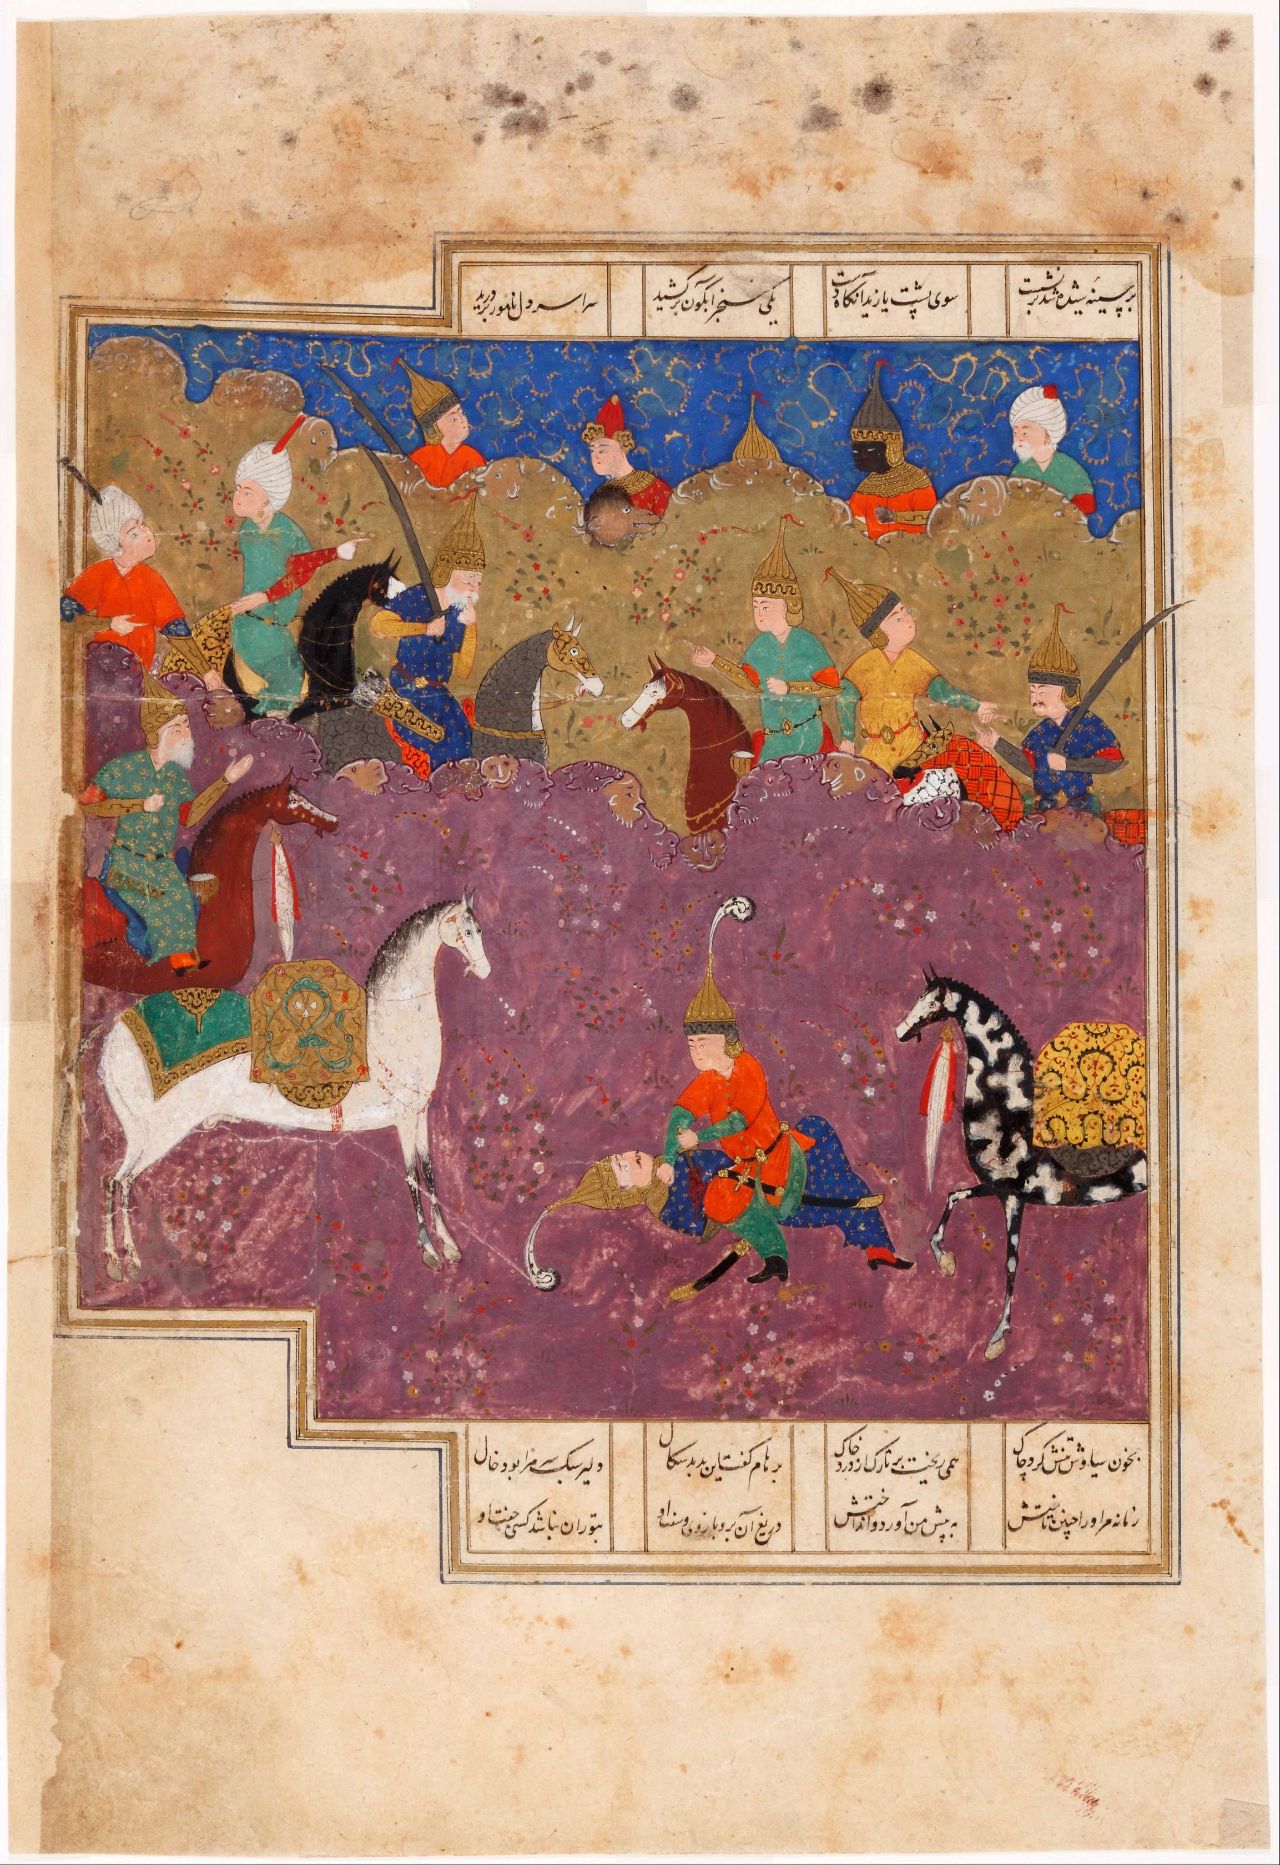 بر سینهٔ شیده شد برنشست سوی پشت یازید آنگاه دست یکی خنجر آبگون برکشید سراسر دل نامور بردرید
بخون سیاوش تنش کرد چاک همی ریخت بر تارک از درد خاک برهام گفت این بد بدسکال دلیر سبک سر مرا بود خال
زمانه مر او را چنین تاختش به پیش من آورد و انداختش دریغ آن بر و بازوی و سفت او بتوران نباشد کسی جفت او